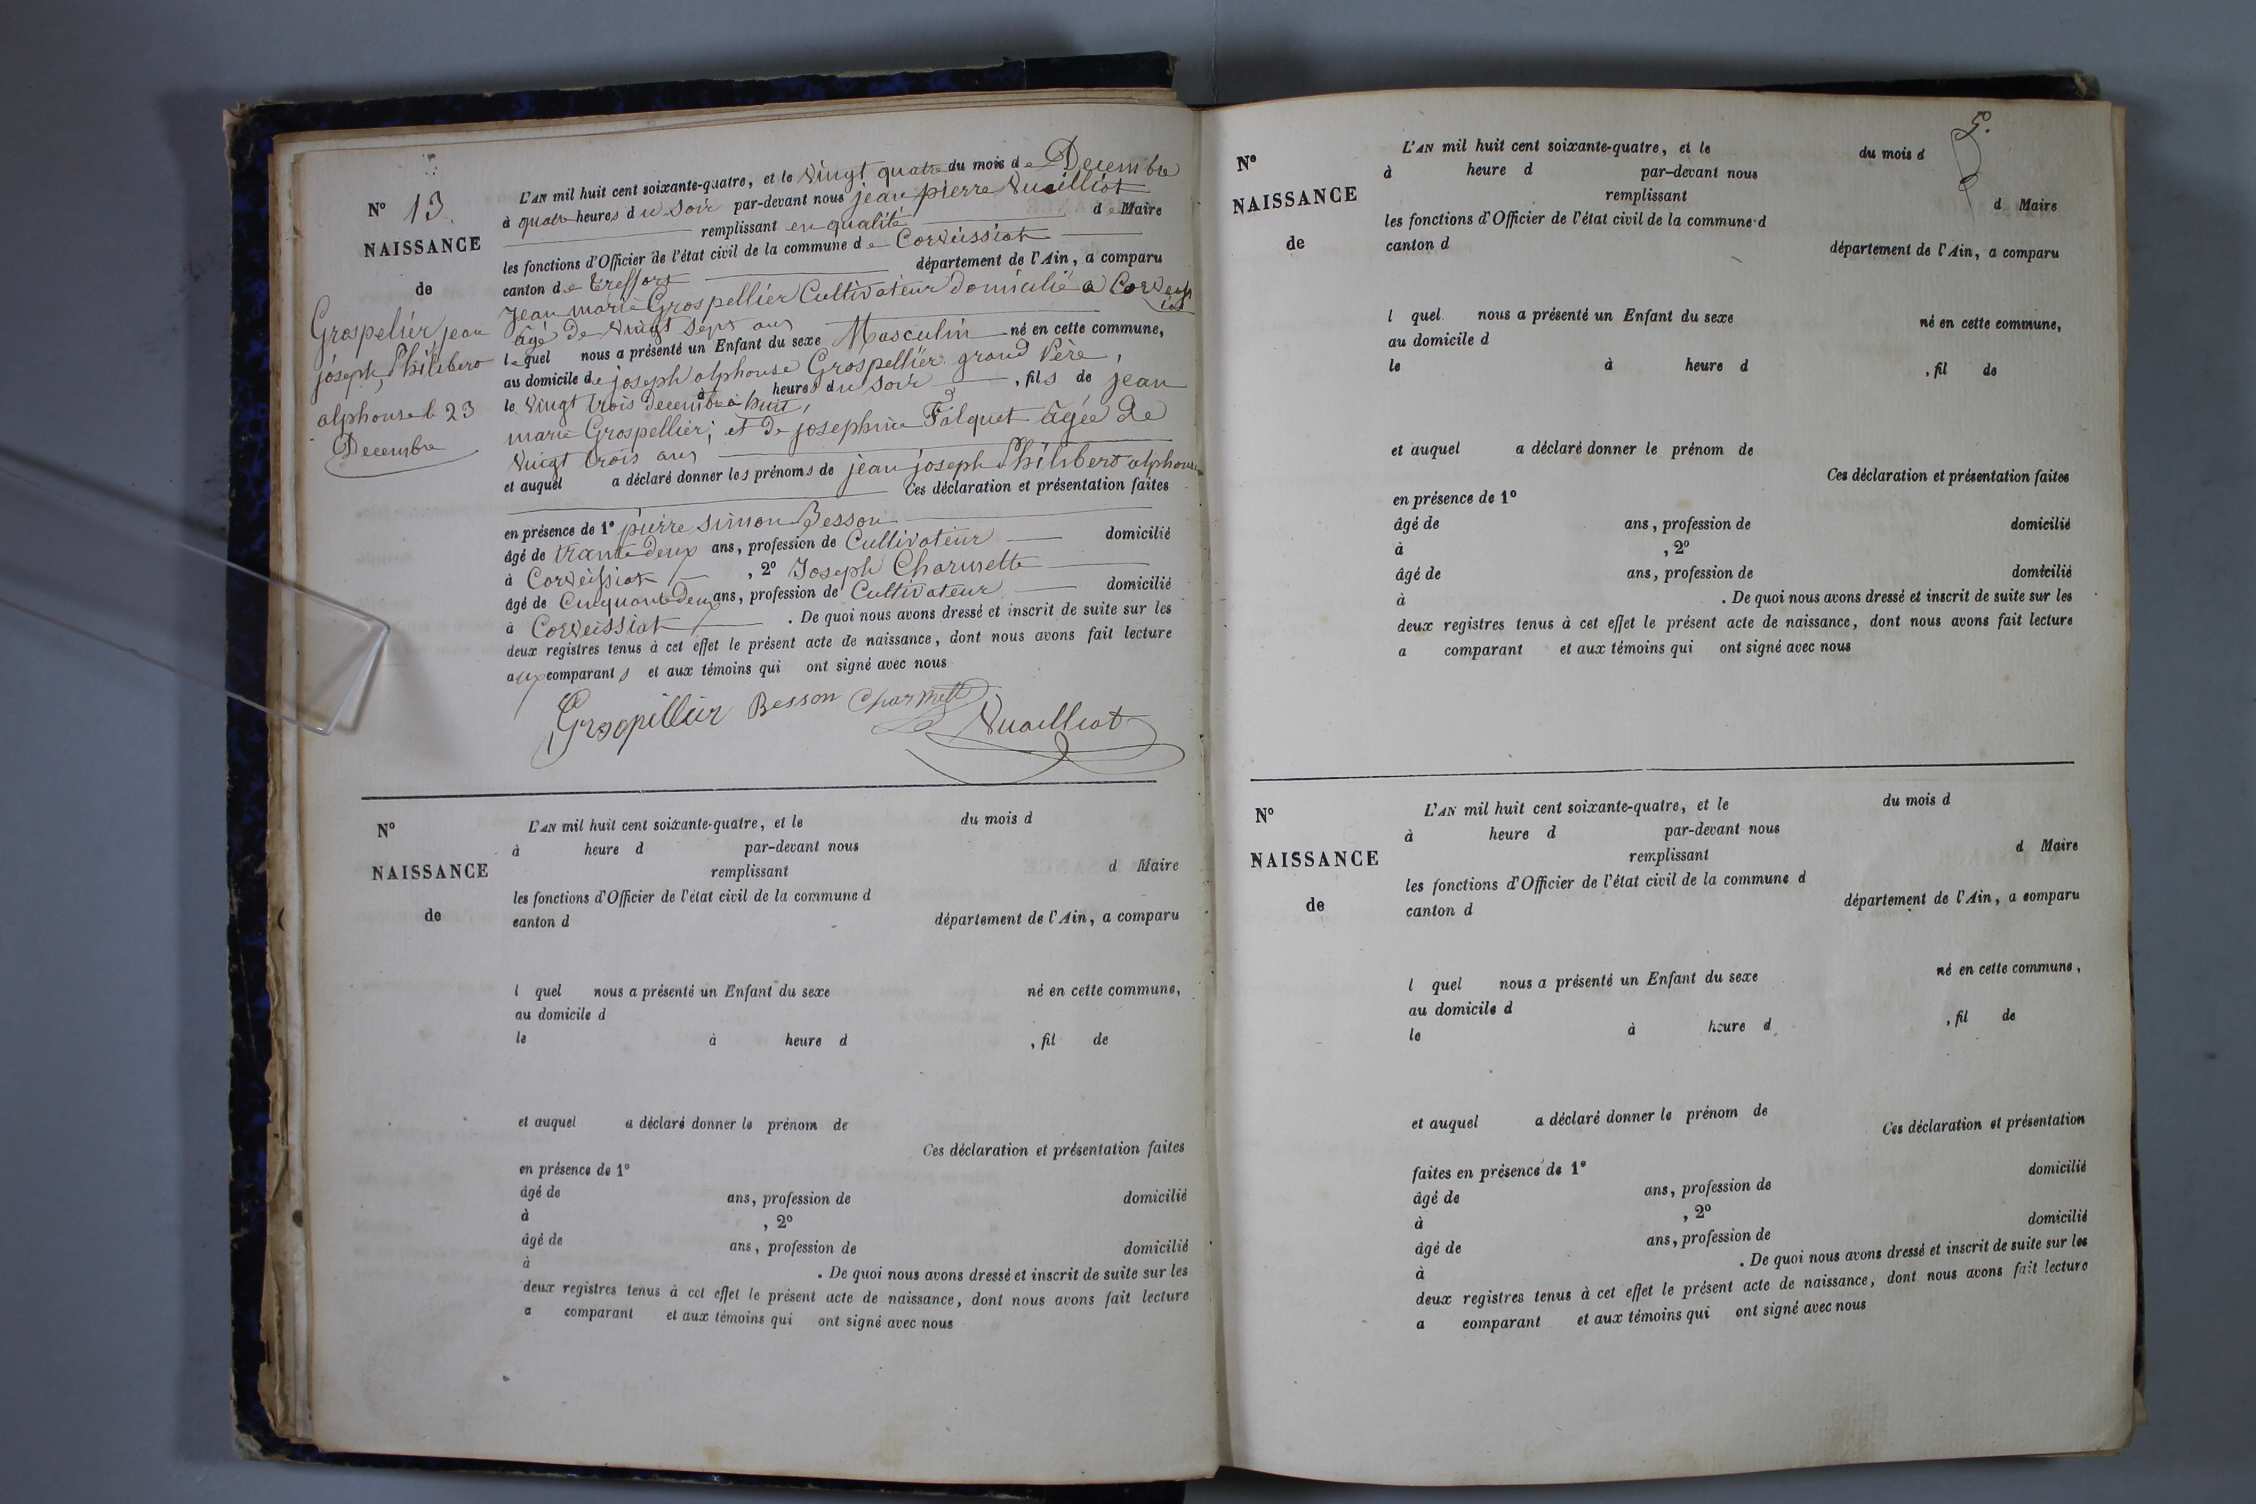 N° 13.
NAISSANCE
de
Grospelier jean
joseph Philibert
alphonse le 23
Decembre
L'AN mil huit cent soixante-quatre, et le vingt quatre du mois de Decembre
à quatre heures du soir par-devant nous jean pierre Vuailliot
remplissant en qualité de Maire
les fonctions d'Officier de l'état civil de la commune de Corveissiat
canton de Treffort département de l'Ain, a comparu
Jean marie Grospellier Cultivateur domicilié a Corveissiat
âgé de vingt sept ans
lequel nous a présenté un Enfant du sexe Masculin né en cette commune,
au domicile de joseph alphonse Grospellier grand Père,
le vingt trois decembre à huit heures du soir, fils de jean
marie Grospellier; et de josephine Falquet âgée de
vingt trois ans
et auquel a déclaré donner les prénoms de jean joseph Philibert alphonse
Ces déclaration et présentation faites
en présence de 1° pierre simon Besson
âgé de trante deux ans, profession de Cultivateur domicilié
à Corveissiat, 2° Joseph Charmette
âgé de Cinquante Deux ans, profession de Cultivateur domicilié
à Corveissiat. De quoi nous avons dressé et inscrit de suite sur les
deux registres tenus à cet effet le présent acte de naissance, dont nous avons fait lecture
aux comparants et aux témoins qui ont signé avec nous
Grospillier Besson Charmett Vuailliot
N°
NAISSANCE
de
L'AN mil huit cent soixante-quatre, et le du mois d
à heure d par-devant nous
remplissant d Maire
les fonctions d'Officier de l'état civil de la commune d
canton d département de l'Ain, a comparu
l quel nous a présenté un Enfant du sexe né en cette commune,
au domicile d
le à heure d , fil de
et auquel a déclaré donner le prénom de
Ces déclaration et présentation faites
en présence de 1°
âgé de ans, profession de domicilié
à , 2°
âgé de ans, profession de domicilié
à . De quoi nous avons dressé et inscrit de suite sur les
deux registres tenus à cet effet le présent acte de naissance, dont nous avons fait lecture
a comparant et aux témoins qui ont signé avec nous
5.
N°
NAISSANCE
de
L'AN mil huit cent soixante-quatre, et le du mois d
à heure d par-devant nous
remplissant d Maire
les fonctions d'Officier de l'état civil de la commune d
canton d département de l'Ain, a comparu
l quel nous a présenté un Enfant du sexe né en cette commune,
au domicile d
le à heure d , fil de
et auquel a déclaré donner le prénom de
Ces déclaration et présentation faites
en présence de 1°
âgé de ans, profession de domicilié
à , 2°
âgé de ans, profession de domicilié
à . De quoi nous avons dressé et inscrit de suite sur les
deux registres tenus à cet effet le présent acte de naissance, dont nous avons fait lecture
a comparant et aux témoins qui ont signé avec nous
N°
NAISSANCE
de
L'AN mil huit cent soixante-quatre, et le du mois d
à heure d par-devant nous
remplissant d Maire
les fonctions d'Officier de l'état civil de la commune d
canton d département de l'Ain, a comparu
l quel nous a présenté un Enfant du sexe né en cette commune,
au domicile d
le à heure d , fil de
et auquel a déclaré donner le prénom de
Ces déclaration et présentation
faites en présence de 1° domicilié
âgé de ans, profession de
à , 2° domicilié
âgé de ans, profession de
à . De quoi nous avons dressé et inscrit de suite sur les
deux registres tenus à cet effet le présent acte de naissance, dont nous avons fait lecture
a comparant et aux témoins qui ont signé avec nous